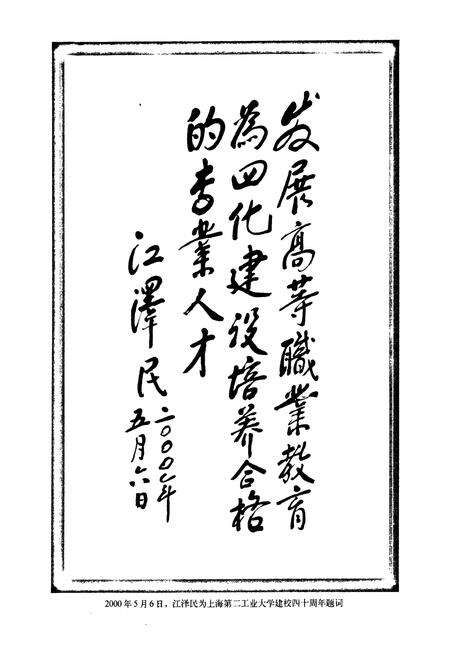 发展高等職業教育
為四化建设培养合格
的专業人才
江澤民
二〇〇〇年
五月六日
2000年5月6日，江泽民为上海第二工业大学建校四十周年题词